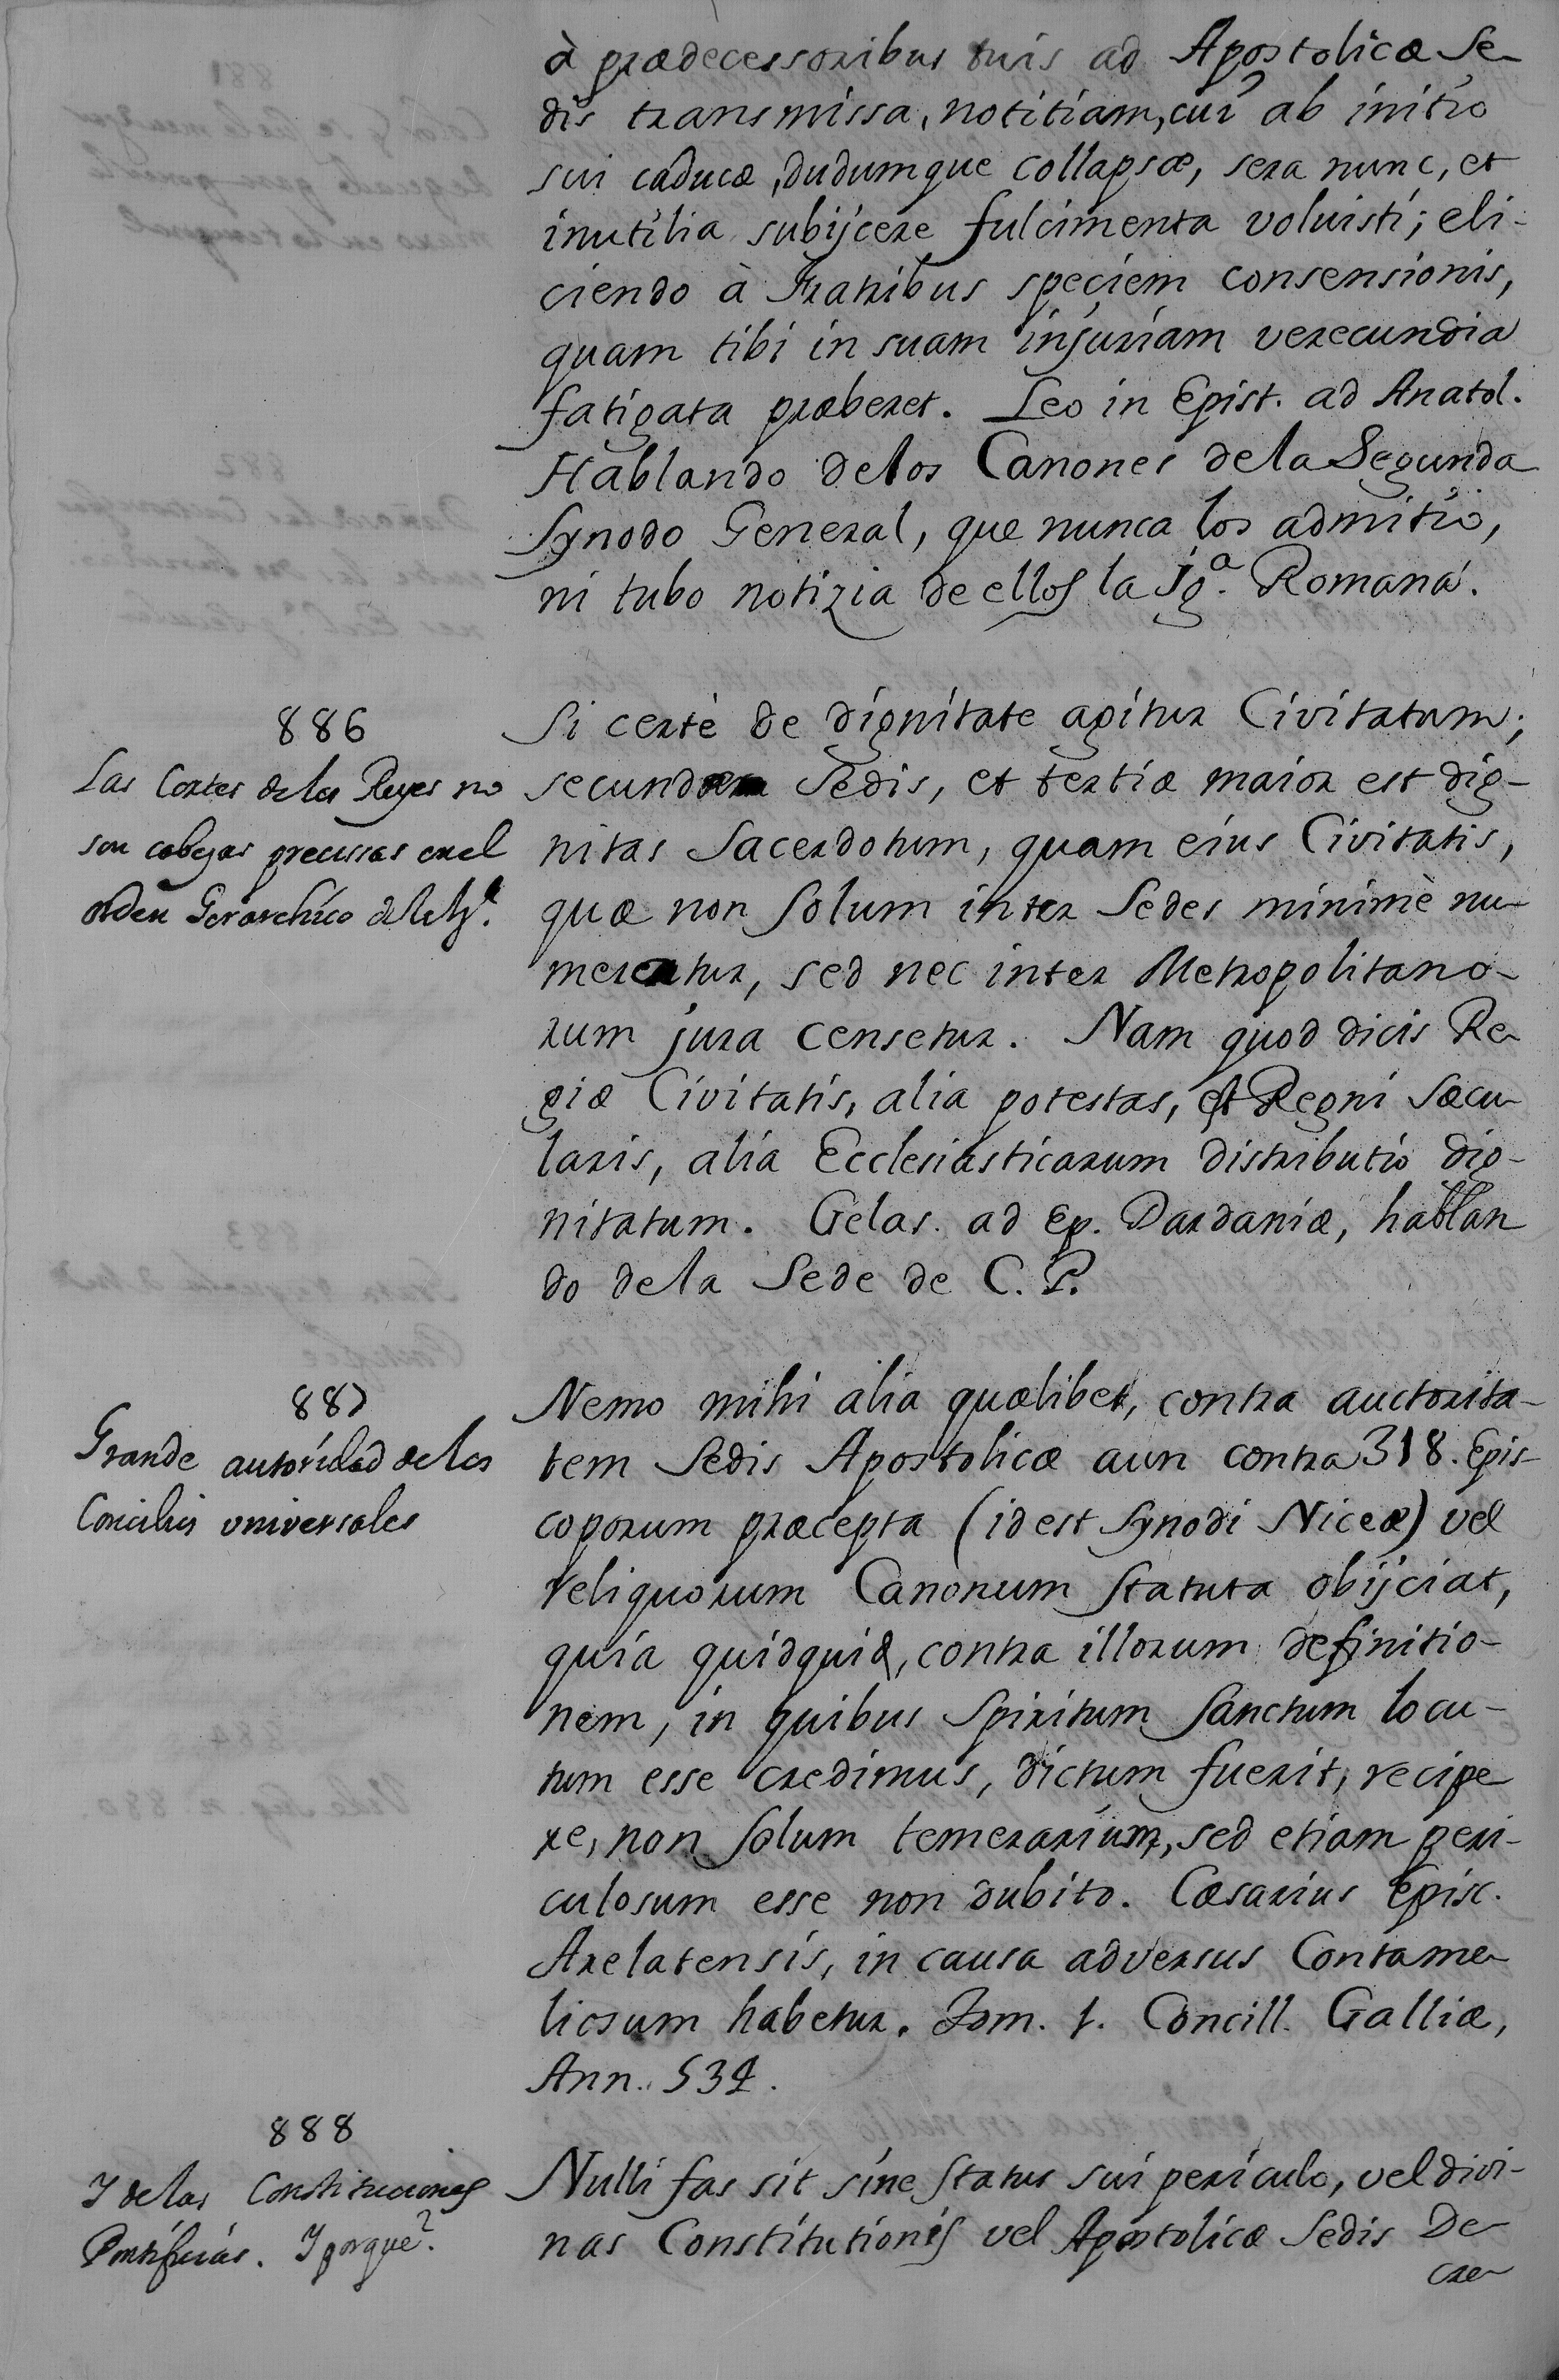 à prædecessoribus tuis ad Apostolicæ Se-
dis transmissa, notitiam, cui ab initio
sui caducæ, dudumque collapsæ, sera nunc, et
inutilia subijcere fulcimenta voluisti; eli-
ciendo à Fratribus speciem consensionis,
quam tibi in suam injuriam verecundia
fatigata præberet. Leo in Epist. ad Anatol.
Hablando delos Canones dela Segunda
Synodo General, que nunca los admitio,
ni tubo notizia de ellos la Jgª. Romana.
886
Las Cortes de los Reyes no
son cabezas precissas en el
orden Gerarchico de la Igª.
Si certè de dignitate agitur Civitatum;
secundæ Sedis, et tertiæ maior est dig-
nitas Sacerdotum, quam eius Civitatis,
quæ non solum inter Sedes minimè nu-
meratur, sed nec inter Metropolitano-
rum jura censetur. Nam quod dicis Re-
giæ Civitatis, alia potestas, est Regni sæcu-
laris, alia Ecclesiasticarum distributio dig-
nitatum. Gelas. ad Ep. Dardaniæ, hablan
do dela Sede de C. P.
887
Grande autoridad de los
Concilios universales
Nemo mihi alia quælibet, contra auctorita-
tem Sedis Apostolicæ aun contra 318. Epis-
coporum præcepta (idest Synodi Niceæ) vel
reliquorum Canonum statuta obijciat,
quia quidquid, contra illorum definitio-
nem, in quibus Spiritum Sanctum locu-
tum esse credimus, dictum fuerit, recipe
re, non solum temerarium, sed etiam peri-
culosum esse non dubito. Cæsarius Episc.
Arelatensis, in causa adversus Contume-
liosum habetur. Tom. 1. Concill. Galliæ,
Ann. 534.
888
I de las Constituciones
Pontificias. I porque?
Nulli fas sit sine status sui periculo, vel divi-
nas Constitutionis vel Apostolicæ Sedis De-
cre-